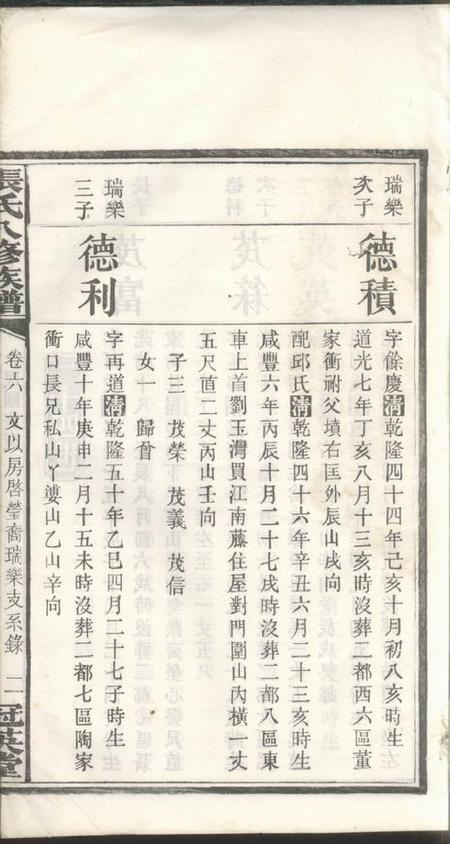 瑞樂
次子
德積
字餘慶清乾隆四十四年己亥十月初八亥時生
道光七年丁亥八月十三亥時沒葬二都西六區董
家衝祔父墳右匡外辰山戌向
配邱氏清乾隆四十六年辛丑六月二十三亥時生
咸豐六年丙辰十月二十七戌時沒葬二都八區東
車上首劉玉灣買江南藤住屋對門圍山內橫一丈
五尺直二丈丙山壬向
子三 茂榮 茂義 茂信
女一 歸曾
瑞樂
三子
德利
字再道清乾隆五十年乙巳四月二十七子時生
咸豐十年庚申二月十五未時沒葬二都七區陶家
衝口長兄私山丫婆山乙山辛向
張氏八修族譜
卷六 文以房啓瑩裔瑞樂支系錄 二
冠英堂